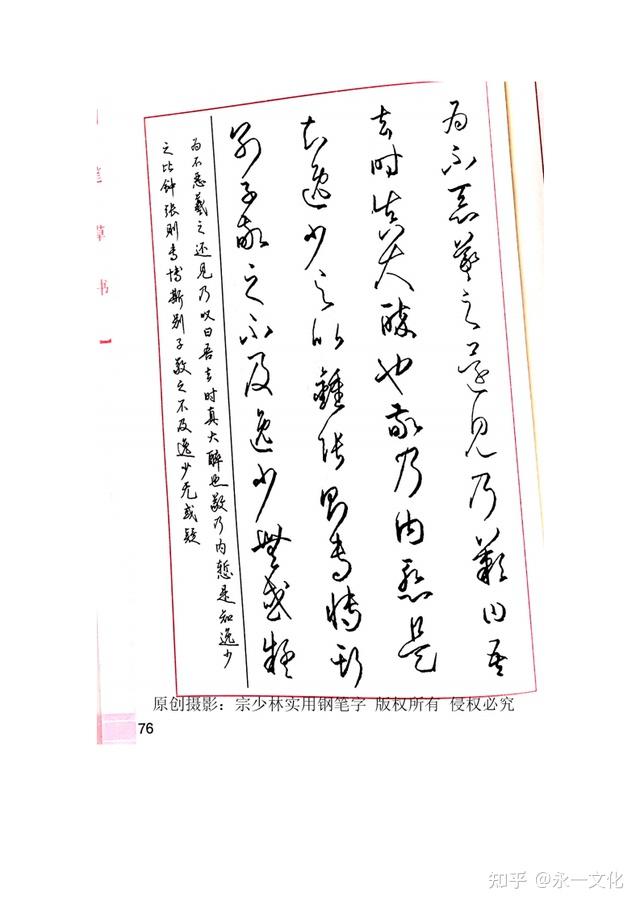 为不恶羲之还见乃叹曰吾
去时真大醉也敬乃内惭是
知逸少之比钟张则专博斯
别子敬之不及逸少無或疑
为不恶羲之还见乃叹曰吾去时真大醉也敬乃内惭是知逸少
之比钟张则专博斯别子敬之不及逸少无或疑
笔草书一
原创摄影：宗少林实用钢笔字 版权所有 侵权必究
76
知乎 @永一文化